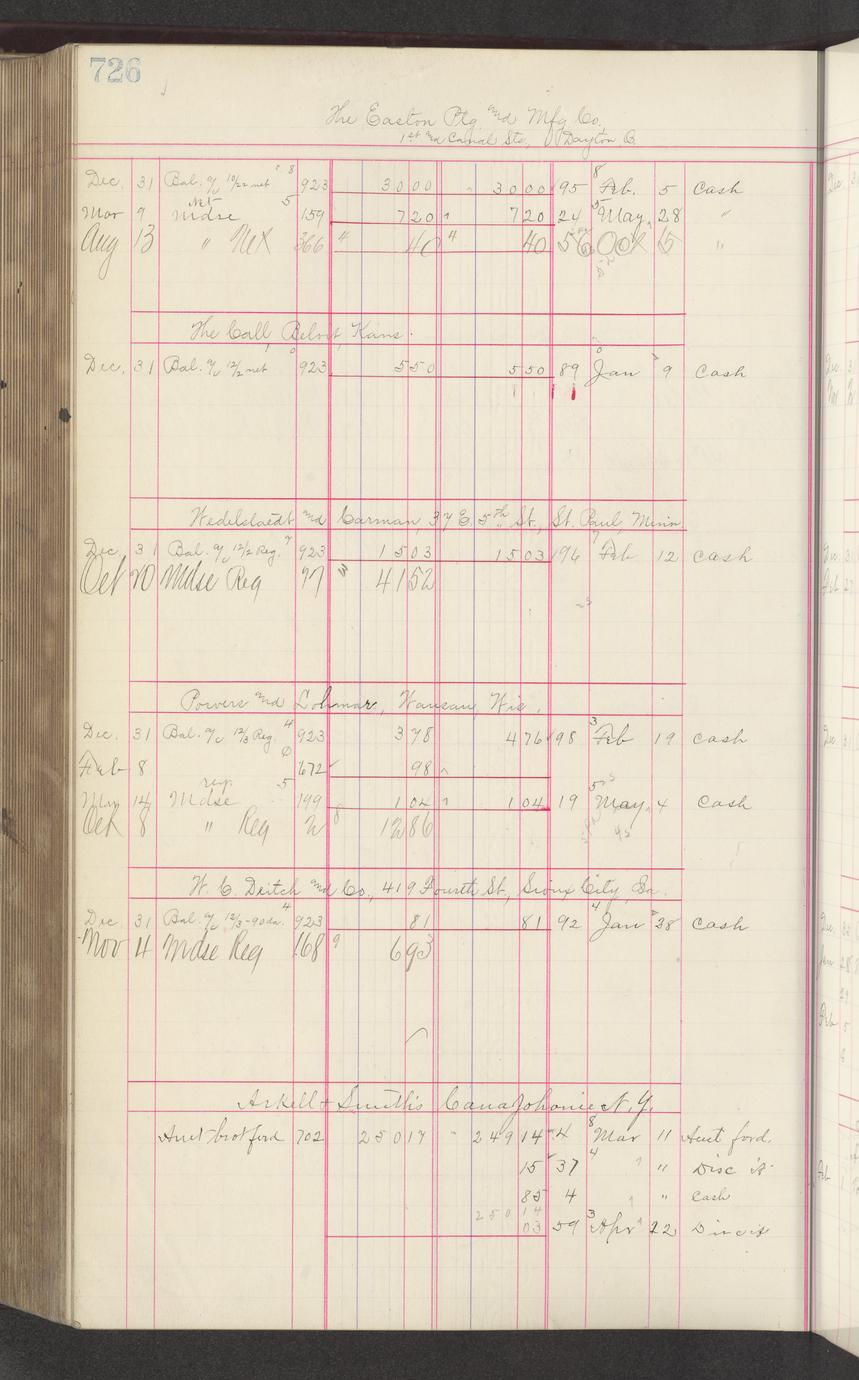 726
The Easton Ptg and Mfg Co.
1st and Canal Sts., Dayton O.
Dec. 31 Bal. a/c 10/22 net 8 923 3000 3000 95 8 Feb. 5 Cash
Mar 9 Mdse net 5 159 720 720 24 5 May 28 "
Aug 13 " Net 366 4 40 4 40 56 Oct 15 "
The Call, Beloit, Kans.
Dec. 31 Bal. a/c 12/2 net 923 550 550 89 Jan 9 Cash
Wedelstaedt and Carman, 37 E. 5th St., St. Paul, Minn.
Dec 31 Bal. a/c 12/2 Reg. 7 923 1503 1503 196 7 Feb 12 Cash
Oct 20 Mdse Reg 77 4152
Powers and Lohmar, Wausau, Wis.
Dec. 31 Bal. a/c 12/3 Reg. 4 923 378 476 98 3 Feb 19 Cash
Feb 8 672 98
May 14 Mdse reg. 5 199 104 104 19 5 May 4 Cash
Oct 8 " Reg 2 8 1286
W. C. Deitch and Co., 419 Fourth St., Sioux City, Ia.
Dec 31 Bal. a/c 12/3-90da. 4 923 81 81 92 4 Jan 38 Cash
Nov 4 Mdse Reg 168 9 693
Arkell & Smiths Canajoharie N.Y.
Amt brot ford 702 25017 24914 4 8 Mar 11 Amt ford.
15 37 4 " Disc
85 4 " Cash
25014
03 59 3 Apr 22